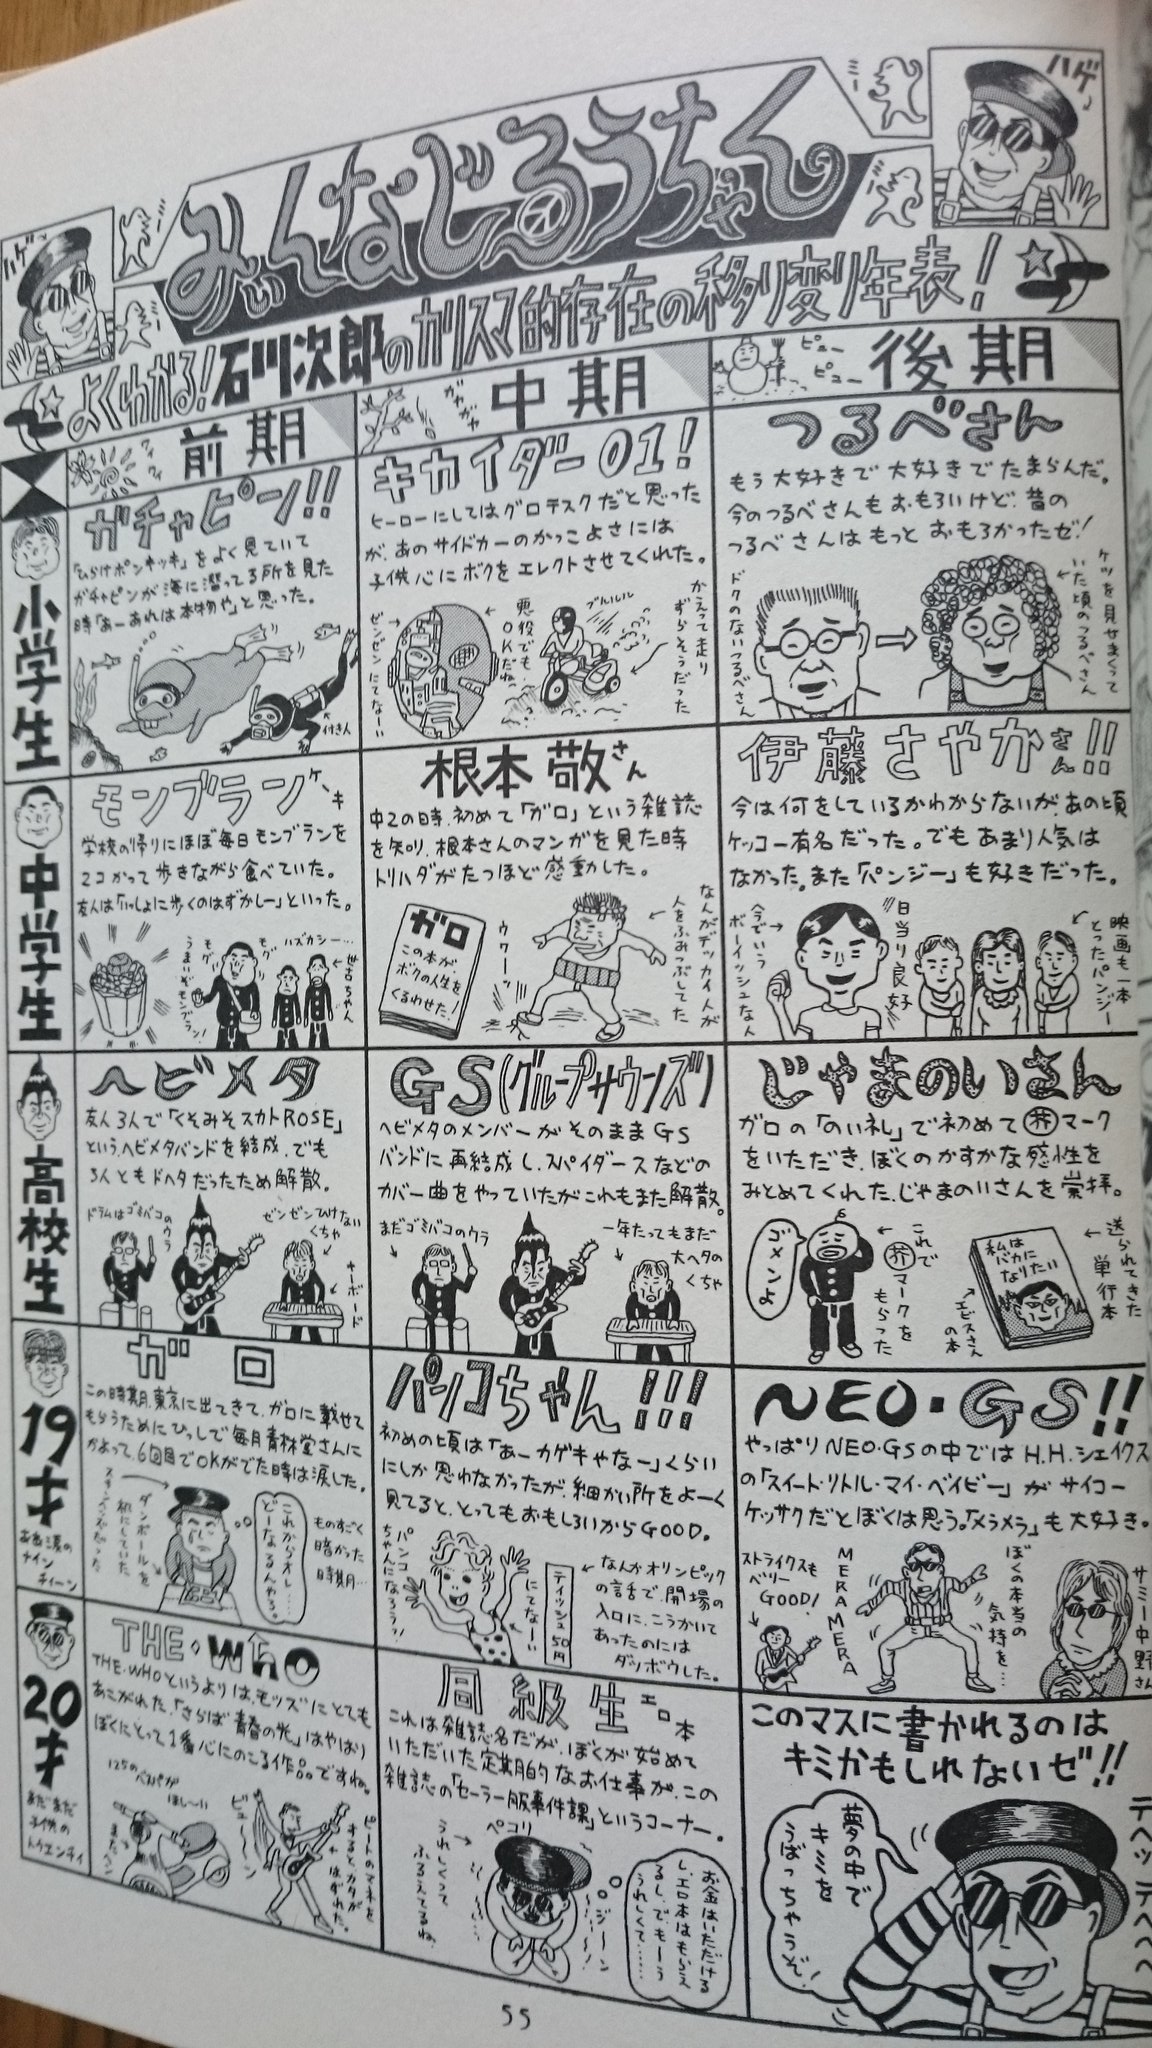 ハゲッ
ミー
ミー
ハゲッ
ミー
ミー
みぃんなじろうちゃん
よくわかる!石川次郎のカリスマ的存在の移り変り年表!
前期
ワィワィ
中期
ガヤガヤ
後期
ピュー
ピュー
小学生
ガチャピン!!
「ひらけポンキッキ」をよく見ていて
ガチャピンが海に潜ってる所を見た
時「あーあれは本物や」と思った。
付き人
キカイダー01!
ヒーローにしてはグロテスクだと思った
が、あのサイドカーのかっこよさには
子供心にボクをエレクトさせてくれた。
ゼンゼンにてなーい
悪役でも
OKだね。
ブルルル
かえって走り
ずらそうだった
つるべさん
もう大好きで大好きでたまらんだ。
今のつるべさんもおもろいけど、昔の
つるべさんはもっとおもろかったゼ!
ドクのないつるべさん
ケツを見せまくって
いた頃のつるべさん
中学生
モンブランケーキ
学校の帰りにほぼ毎日モンブランを
2コかって歩きながら食べていた。
友人は「いっしょに歩くのはずかしー」といった。
モグ
モグ
うまいぞモンブラン!
ハズカシー…
世古ちゃん
根本敬さん
中2の時、初めて「ガロ」という雑誌
を知り、根本さんのマンガを見た時
トリハダがたつほど感動した。
ガロ
この本が、
ボクの人生を
くるわせた!
ウワーッ
なんかデッカイ人が
人をふみつぶしてた
伊藤さやかさん!!
今は何をしているかわからないが、あの頃
ケッコー有名だった。でもあまり人気は
なかった。また「パンジー」も好きだった。
今でいう
ボーイッシュなん
日当り良好
映画も一本
とったパンジー
高校生
ヘビメタ
友人3人で「くそみそスカトROSE」
というヘビメタバンドを結成、でも
3人ともドヘタだったため解散。
ドラムはゴミバコのウラ
ゼンゼンひけない
くちゃ
キーボード
GS(グループサウンズ)
ヘビメタのメンバーがそのままGS
バンドに再結成し、スパイダースなどの
カバー曲をやっていたがこれもまた解散。
まだゴミバコのウラ
一年たってもまだ
大ヘタの
くちゃ
じゃまのいさん
ガロの「のい礼」で初めて㊕マーク
をいただき、ぼくのかすかな感性を
みとめてくれた、じゃまのいさんを崇拝。
ゴメンよ
これで
マークを
もらった
私は
バカに
なりたい
エビスさん
の本
送られてきた
単行本
19才
ああ涙の
ナイン
ティーン
ガロ
この時期、東京に出てきて、ガロに載せて
もらうためにひっしで毎月青林堂さんに
かよって、6回目でOKがでた時は涙した。
ダンボールを
机にしていた
これからオレ…
どーなるんやろ。
ものすごく
暗かった
時期…
パンコちゃん!!!
初めの頃は「あーカゲキやなー」くらい
にしか思わなかったが、細かい所をよーく
見てると、とってもおもしろいからGOOD。
パンコ
ちゃんになろう!
にてなーい
ティッシュ50円
なんかオリンピック
の話で、開場の
入口に、こうかいて
あったのには
ダツボウした。
NEO・GS!!
やっぱりNEO・GSの中ではH.H.シェイクス
の「スイート・リトル・マイ・ベイビー」がサイコー
ケッサクだとぼくは思う。「メラメラ」も大好き。
ストライクスも
ベリー
GOOD!
MERAMERA
ぼくの本当の
気持を…
サミー中野さん
20才
まだまだ
子供の
トゥエンティ
THE・WHO
THE・WHOというよりは、モッズにとても
あこがれた。「さらば青春の光」はやはり
ぼくにとって1番心にのこる作品ですね。
125のベスパが
ほし〜い
ビュ〜ン
ピートのマネを
すると、カタが
はずれた。
同級生エロ本
これは雑誌名だが、ぼくが始めて
いただいた定期的なお仕事が、この
雑誌の「セーラー服事件課」というコーナー。
ペコリ
うれしくって
ふるえてるね。
ジーン
お金はいただける
し、エロ本はもらえ
るし、で、もーう
うれしくて……
このマスに書かれるのは
キミかもしれないゼ!!
夢の中で
キミを
うばっちゃうぞ!
テヘッテヘヘヘ
55